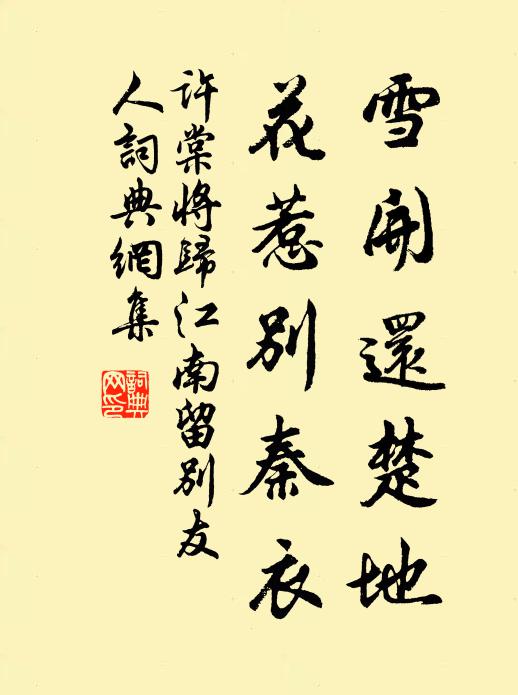 雪開還楚地
花惹別秦衣
許棠將歸江南留別友
人詞典網集
詞典
网印